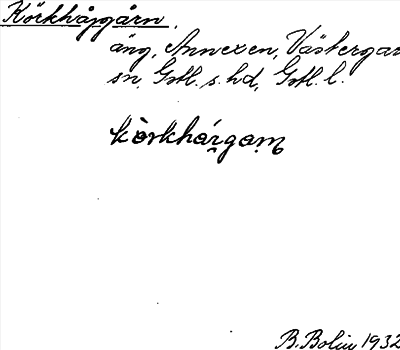 Körkhåjgårn.
äng, Annexen, Västergar
sn, Gotl. s. hd, Gotl. l.
kòrkhárgam
B. Bolin 1932